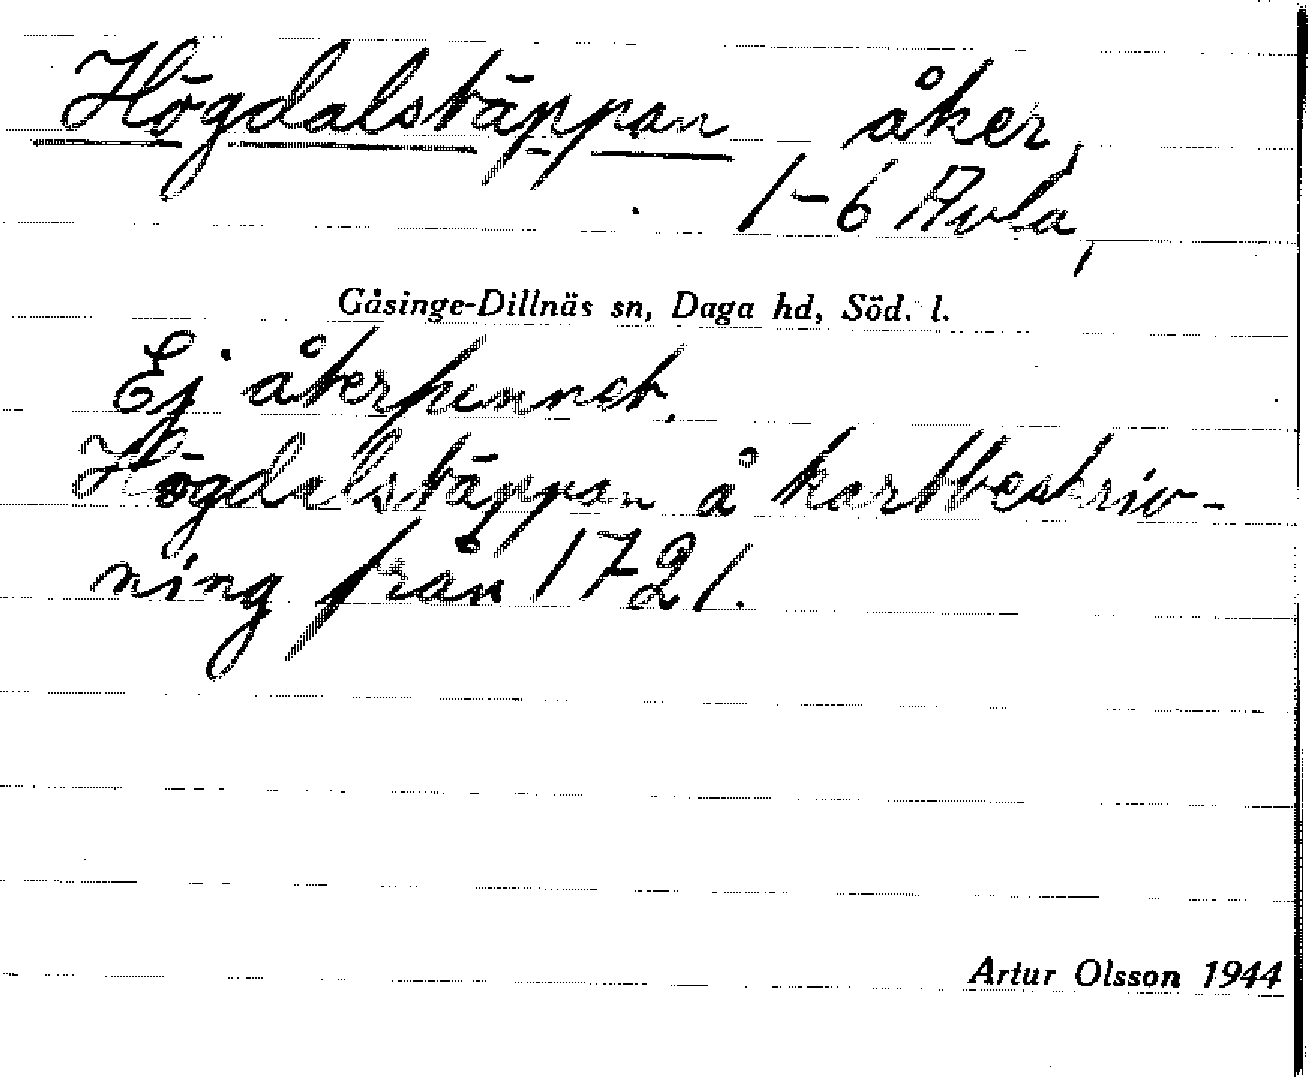 Högdalstäppan åker,
1-6 Avla,
Gåsinge-Dillnäs sn, Daga hd, Söd. l.
Ej återfunnet.
Högdalstäppan å kartbeskriv-
ning från 1721.
Artur Olsson 1944